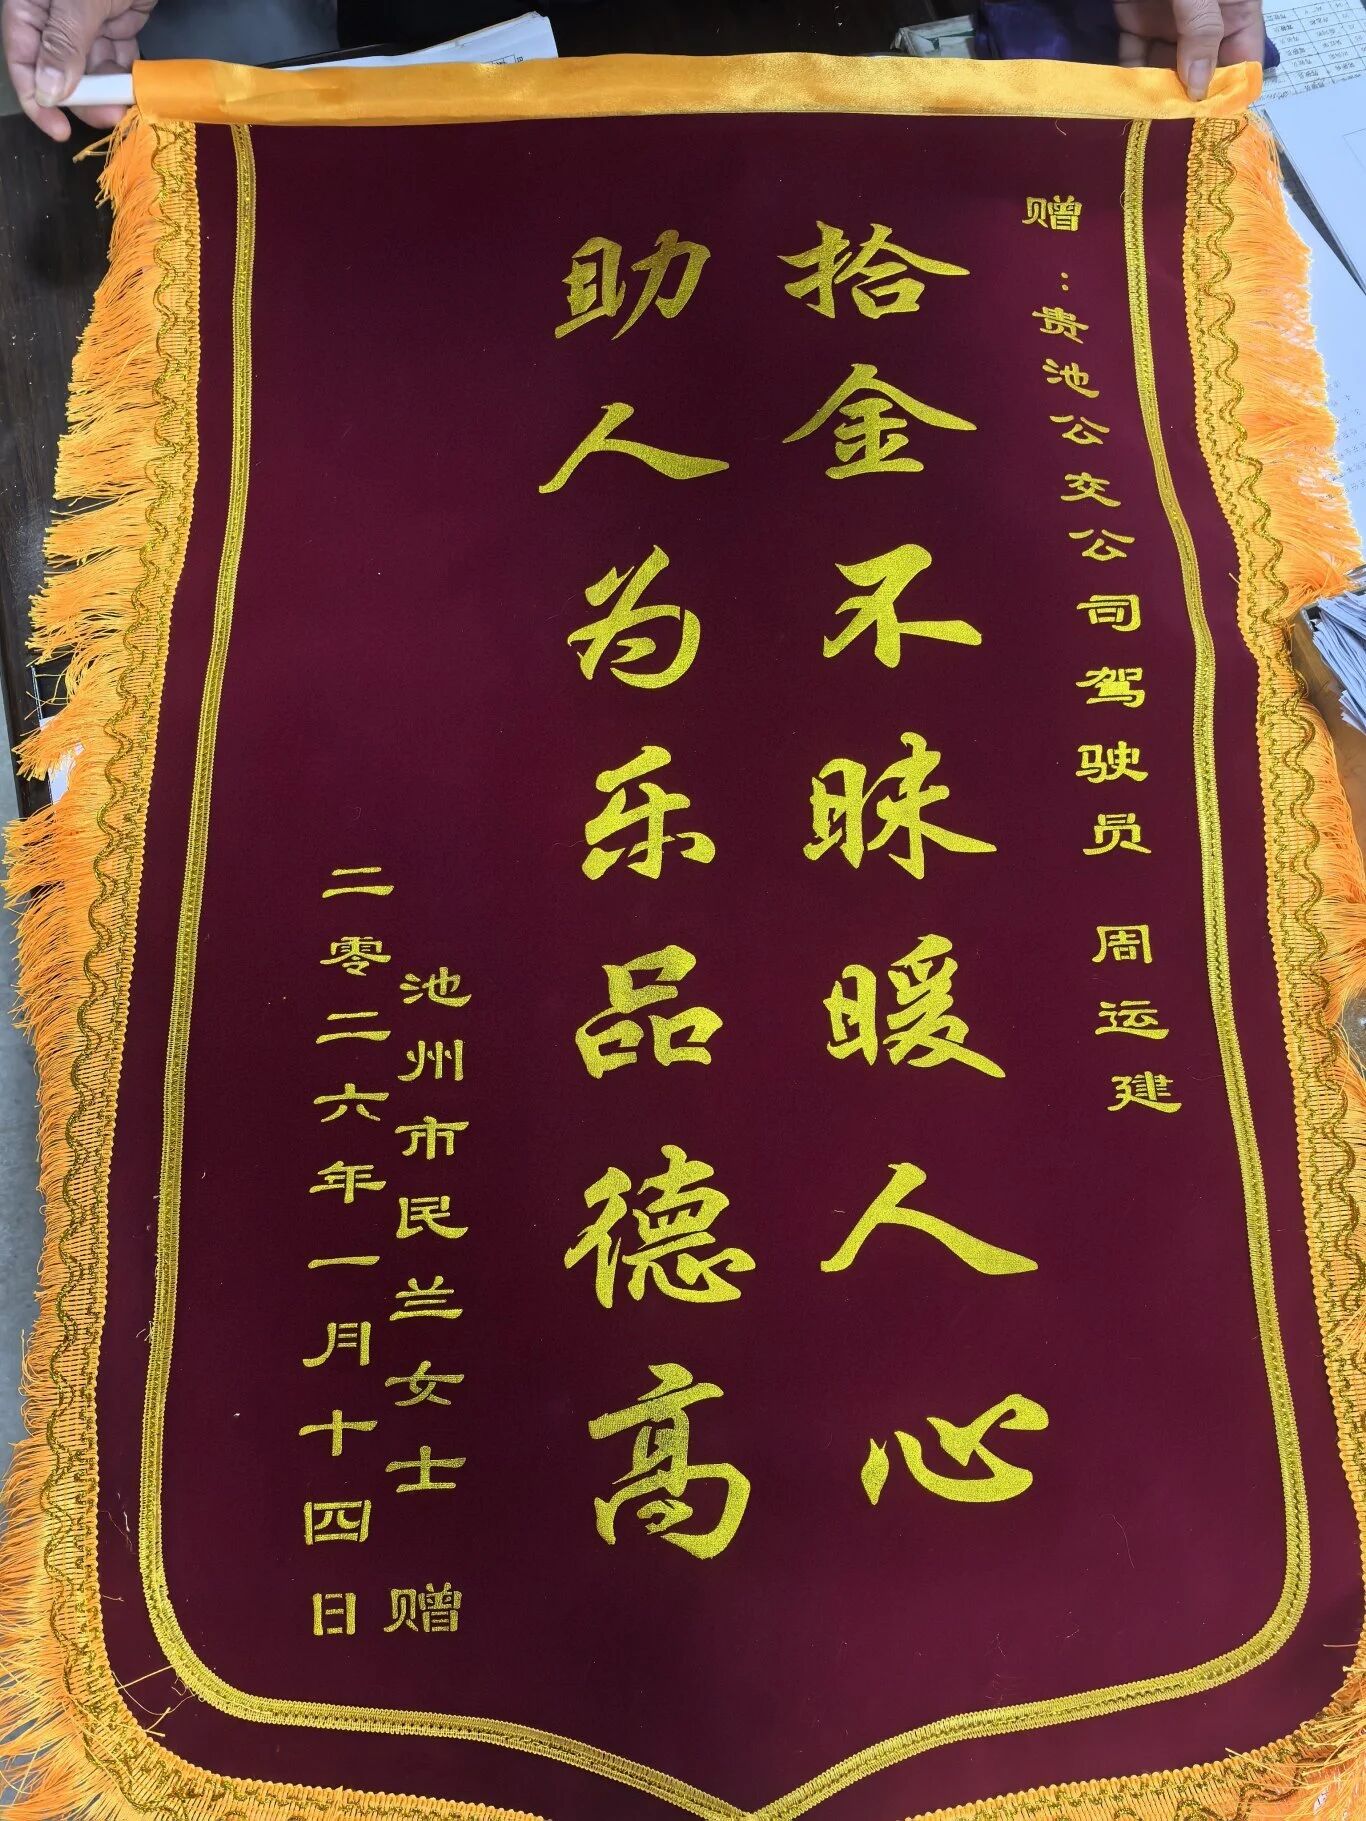 赠：贵池公交公司驾驶员 周运建
拾金不昧暖人心
助人为乐品德高
池州市民兰女士 赠
二零二六年一月十四日